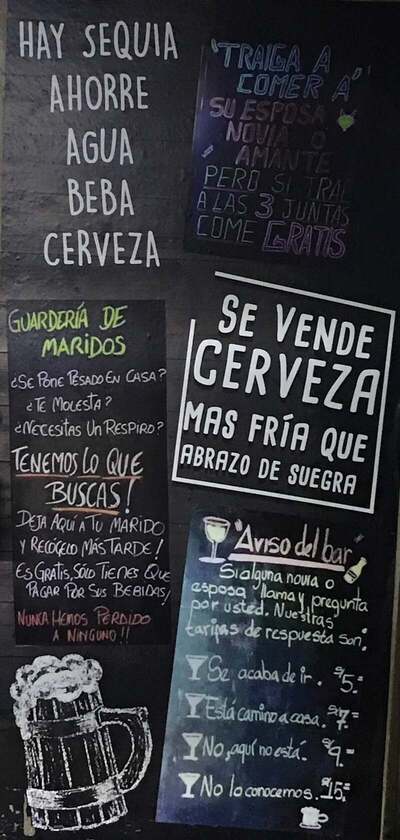 HAY SEQUIA
AHORRE
AGUA
BEBA
CERVEZA
"TRAIGA A
COMER A"
SU ESPOSA
NOVIA O
AMANTE
PERO SI TRAE
A LAS 3 JUNTAS
COME GRATIS
GUARDERÍA DE
MARIDOS
¿SE PONE PESADO EN CASA?
¿TE MOLESTA?
¿NECESITAS UN RESPIRO?
TENEMOS LO QUE
BUSCAS!
DEJA AQUÍ A TU MARIDO
Y RECÓGELO MÁS TARDE!
ES GRATIS, SÓLO TIENES QUE
PAGAR POR SUS BEBIDAS!
NUNCA HEMOS PERDIDO
A NINGUNO!!
SE VENDE
CERVEZA
MAS FRÍA QUE
ABRAZO DE SUEGRA
"Aviso del bar"
Si alguna novia o
esposa llama y pregunta
por usted. Nuestras
tarifas de respuesta son:
Se acaba de ir. $5.=
Está camino a casa. $7=
No, aquí no está. $9.=
No lo conocemos. $15.=